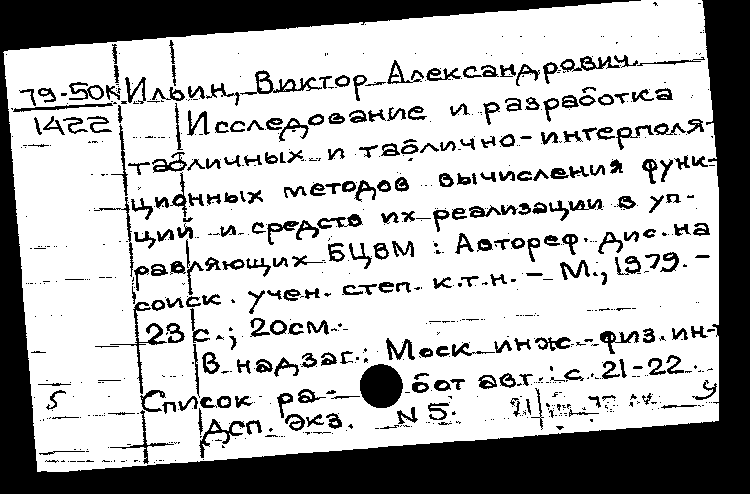 79-50К Ильин, Виктор Александрович.
1422 Исследование и разработка
табличных и таблично-интерполя-
ционных методов вычисления функ-
ций и средств их реализации в уп-
равляющих БЦВМ : Автореф. дис. на
соиск. учен. степ. к.т.н. - М., 1979. -
23 с.; 20см.
В надзаг.: Моск. инж.-физ. ин-т
5 Список работ авт.: с. 21-22.
Дсп. Экз. N 5. У